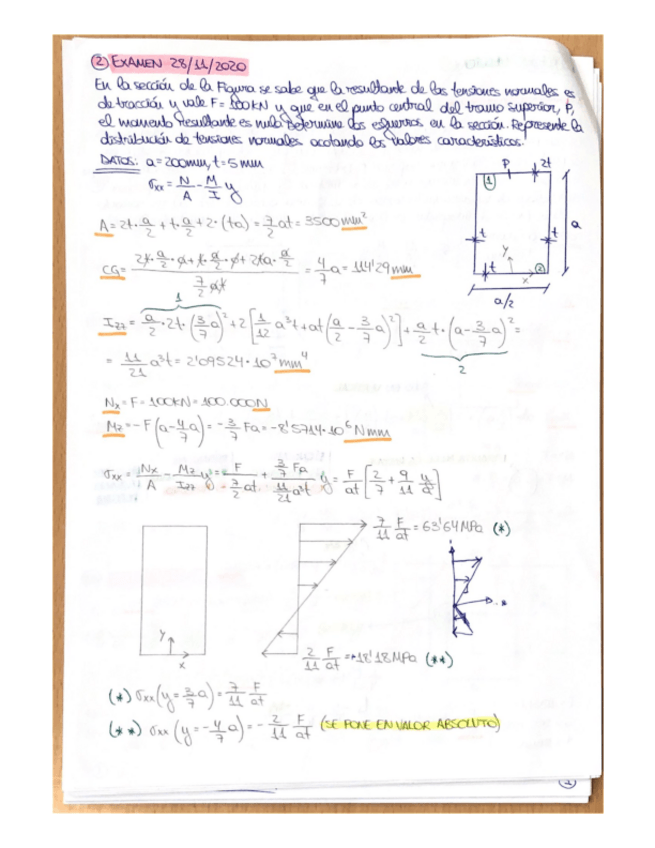 ② EXAMEN 28/11/2020
En la sección de la Figura se sabe que la resultante de las tensiones normales es
de tracción y vale F = 100kN y que en el punto central del tramo superior, P,
el momento resultante es nulo. Determine los esfuerzos en la sección. Represente la
distribución de tensiones normales acotando los valores característicos.
DATOS: a = 200mm, t = 5 mm
σxx = N/A - M/I y
A = 2t·a/2 + t·a/2 + 2·(ta) = 7/2 at = 3500 mm²
CG = (2t·a/2·a + t·a/2·0 + 2ta·a/2)/(7/2 at) = 4/7 a = 114'29 mm
1
Izz = a/2·2t·(3/7 a)² + 2[1/12 a³t + at(a/2 - 3/7 a)²] + a/2 t·(a - 3/7 a)² =
2
= 11/21 a³t = 2'09524·10⁷ mm⁴
Nx = F = 100kN = 100.000N
Mz = -F(a - 4/7 a) = -3/7 Fa = -8'5714·10⁶ Nmm
σxx = Nx/A - Mz/Izz y = F/(7/2 at) + (3/7 Fa)/(11/21 a³t) y = F/at [2/7 + 9/11 y/a]
P 2t
1
t t
a
y
t x 2
a/2
7/11 F/at = 63'64 MPa (*)
y
x
2/11 F/at = 18'18 MPa (**)
(*) σxx(y = 3/7 a) = 7/11 F/at
(**) σxx(y = -4/7 a) = -2/11 F/at (SE PONE EN VALOR ABSOLUTO)